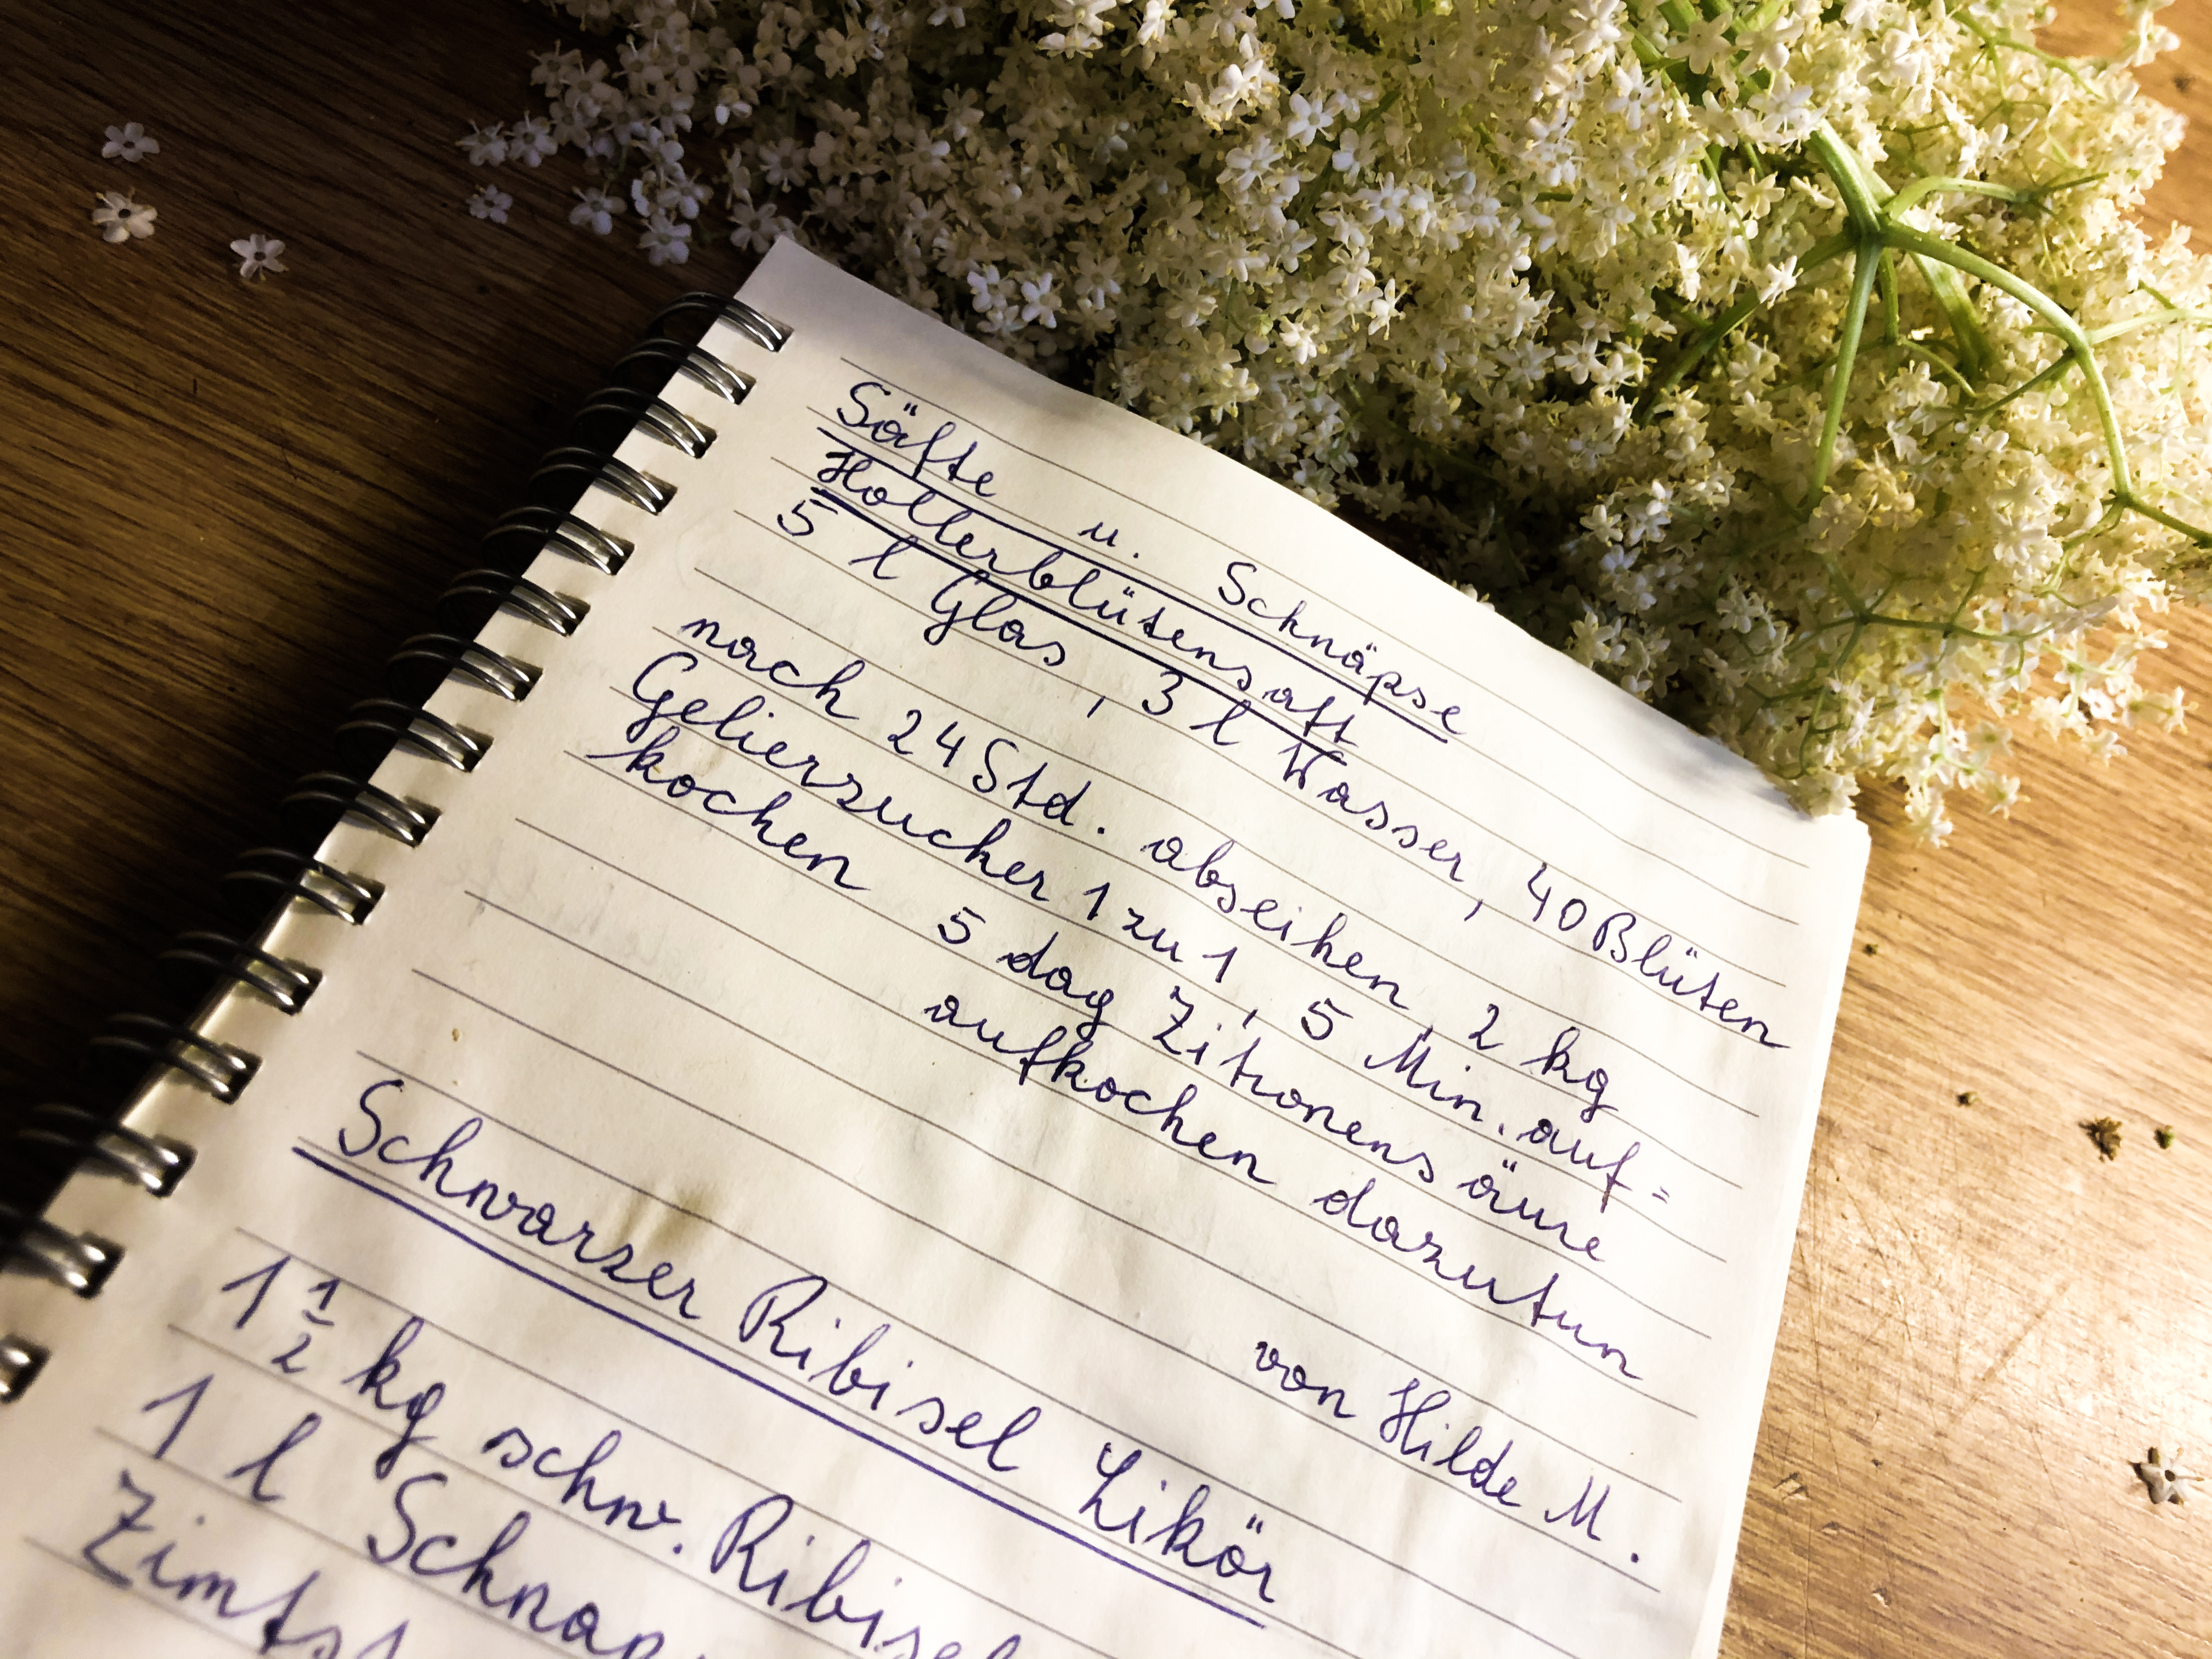 Säfte u. Schnäpse
Hollerblütensaft
5 l Glas, 3 l Wasser, 40 Blüten
nach 24 Std. abseihen, 2 kg
Gelierzucker 1 zu 1, 5 Min. auf=
kochen 5 dag Zitronensäure
aufkochen dazutun
von Hilde M.
Schwarzer Ribisel Likör
1 1/2 kg schw. Ribisel
1 l Schnap
Zimtst